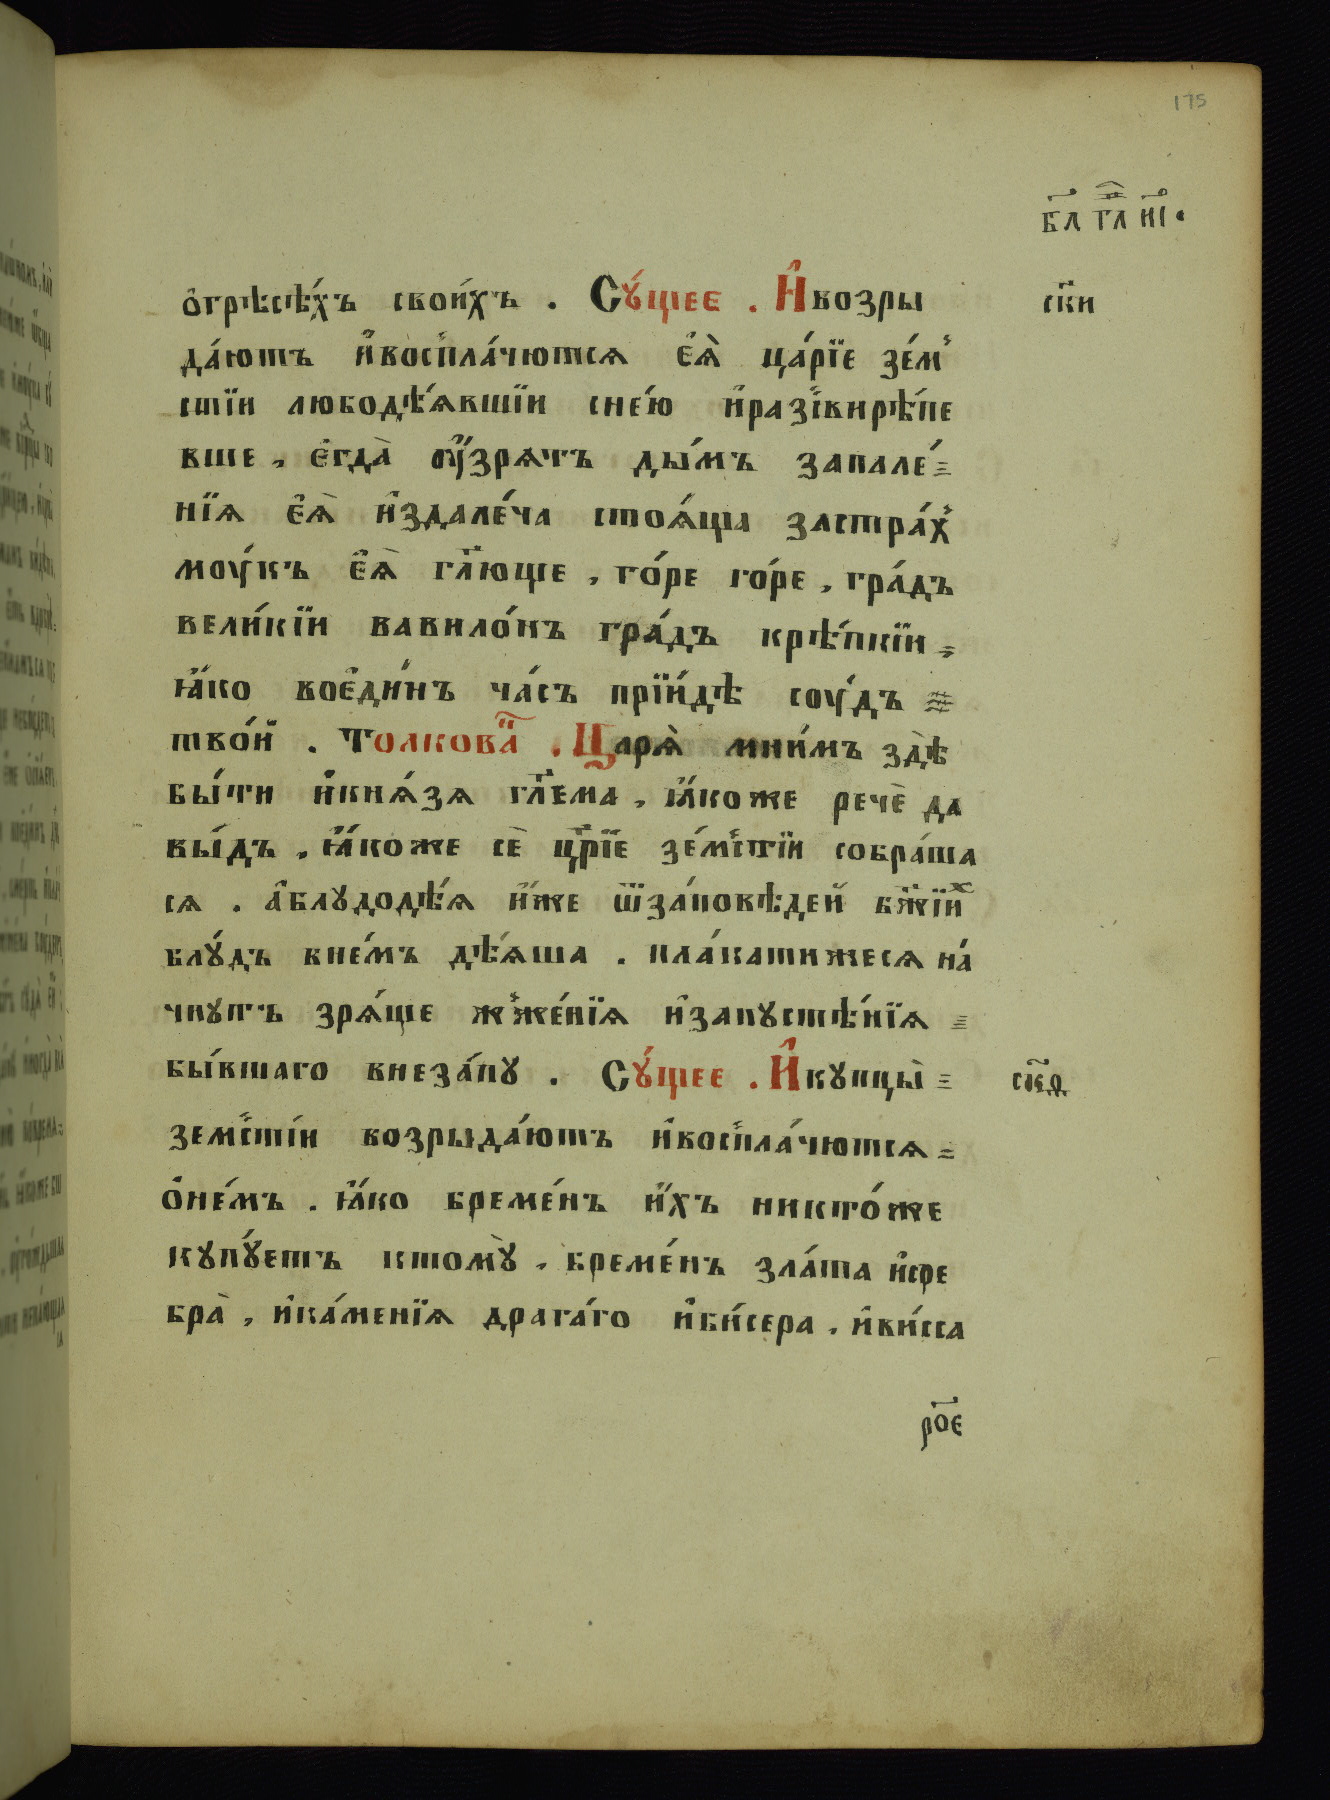 175
гл҃ ни҃
ѻ҆грѣсѣ́хъ свои́хъ . Сꙋ́щее . И҆возры
ск҃и
да́ютъ и҆воспла́чютсѧ є҆ѧ̀ ца́рїе зе́м
стїи любодѣ́ѧвшїи снє́ю и҆разсвирѣ́пе
вше , є҆гда̀ оу҆́зрѧтъ ды́мъ запале́
нїѧ є҆ѧ̀ и҆здале́ча стоѧ́ща застра́х
моу́къ є҆ѧ̀ гл҃юще , го́ре го́ре , гра́дъ
вели́кїи вавило́нъ гра́дъ крѣ́пкїи
ꙗ҆́ко воє҆ди́нъ ча́съ прїи́дѣ соу́дъ
тво́й . Толкова҃ . Царѧ̀ мни́мъ здѣ̀
бы́ти и҆кнѧ́зѧ гл҃ема , ꙗ҆́коже речѐ да
вы́дъ , ꙗ҆́коже сѐ цр҃їе зе́мстїи собра́ша
сѧ . а҆блудодѣ́ѧ и҆́же ѿза́повѣдей бж҃їих
блꙋ́дъ внем́ъ дѣ́ѧша . пла́катижесѧ на́
чнутъ зрѧ́ще жже́нїѧ и҆запустѣ́нїѧ
бы́вшаго внеза́пу . Сꙋ́щее . И҆купцы̀
земсті́и возрыда́ютъ и҆воспла́чютсѧ
ѻ҆не́мъ . ꙗ҆́ко бреме́нъ и҆́хъ никто́же
купꙋ́етъ ктомꙋ̀ , бреме́нъ зла́та и҆сре
бра̀ , и҆ка́менїѧ драга́го и҆би́сера , и҆ви́сса
ро҃є